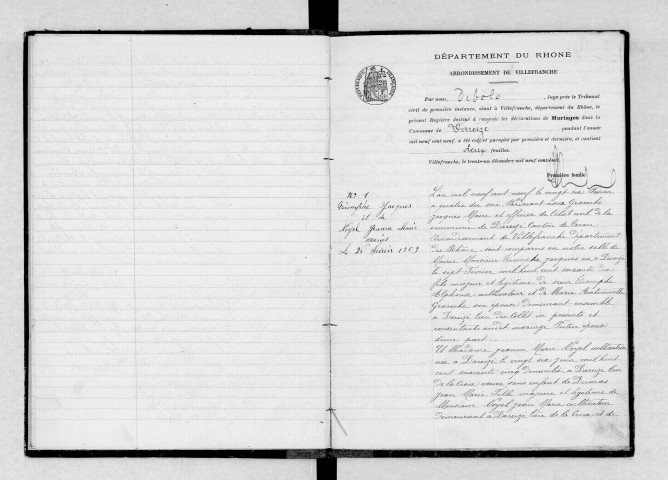 DÉPARTEMENT DU RHONE
ARRONDISSEMENT DE VILLEFRANCHE
Par nous, Juge près le Tribunal
civil de première instance, séant à Villefranche, département du Rhône, le
présent Registre destiné à recevoir les déclarations de Mariages dans la
Commune de Dareizé pendant l'année
mil neuf cent neuf, a été coté et paraphé par première et dernière, et contient
deux feuilles.
Villefranche, le trente-un décembre mil neuf cent huit.
Première feuille
No 1
Triomphe Jacques
et de
Noyel Jeanne Marie
mariés
Le 26 février 1909
L'an mil neuf cent neuf le vingt six février
a quatre du soir Pardevant nous Granche
Jacques Maire et officier de l'état civil de la
commune de Dareizé Canton de Tarare
Arrondissement de Villefranche Département
du Rhône, sont comparus en notre salle de
Mairie Monsieur Triomphe Jacques né a Dareizé
le sept Février mil huit cent
fils majeur et légitime de sieur Triomphe
cultivateur et de Marie Antoinette
son épouse demeurant ensemble
a Dareizé lieu du Collet ici présents et
consentants audit mariage Futur époux
d'une part
Et Madame Jeanne Marie Noyel cultivatrice
née a Dareizé le vingt six juin mil huit
cent soixante cinq domiciliée a Dareizé lieu
de la Croix veuve sans enfant de Dumas
Jean Marie Fille majeure et légitime de
Monsieur Noyel Jean Marie cultivateur
demeurant a Dareizé lieu de la Croix et de